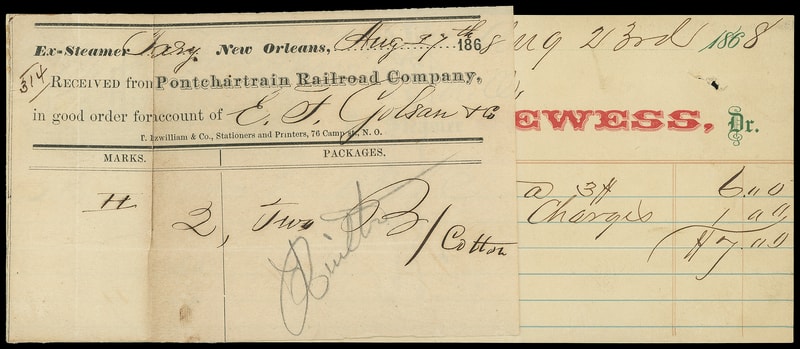 Ex-Steamer Mary. New Orleans, Aug 27th 1868
314/
RECEIVED from Pontchartrain Railroad Company,
in good order for account of E. F. Golsan & Co
Fitzwilliam & Co., Stationers and Printers, 76 Camp st., N. O.
MARKS. PACKAGES.
H 2, Two B/Cotton
Aug 23rd 1868
EWESS, Dr.
a 3$ 6.00
Charges 1.00
$7.00